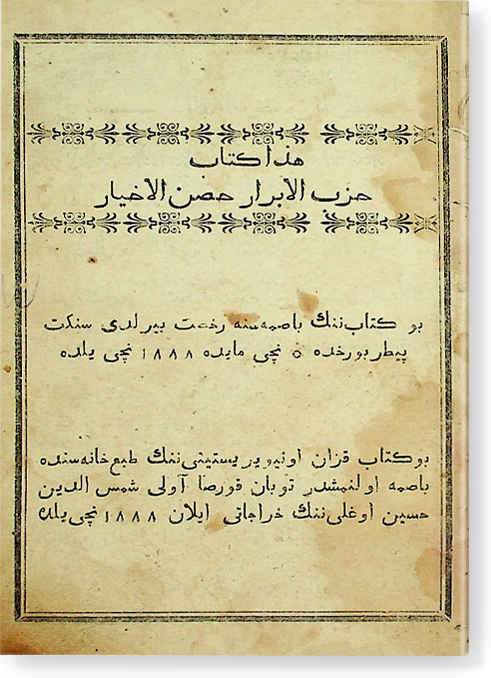 هذا كتاب
حزب الابرار حصن الاخيار
بو كتاب‌ننك باصمه‌سنه رخصت بيرلدى سنكت
پيطربورخده ٥ نچى مايده ١٨٨٨ نچى يلده
بو كتاب قزان اونيويرسيتيتى‌ننك طبع خانه‌سنده
باصمه اولنمشدر توبان قورصا آولى شمس الدين
حسين اوغلى‌ننك خراجاتى ايلان ١٨٨٨ نچى يلده